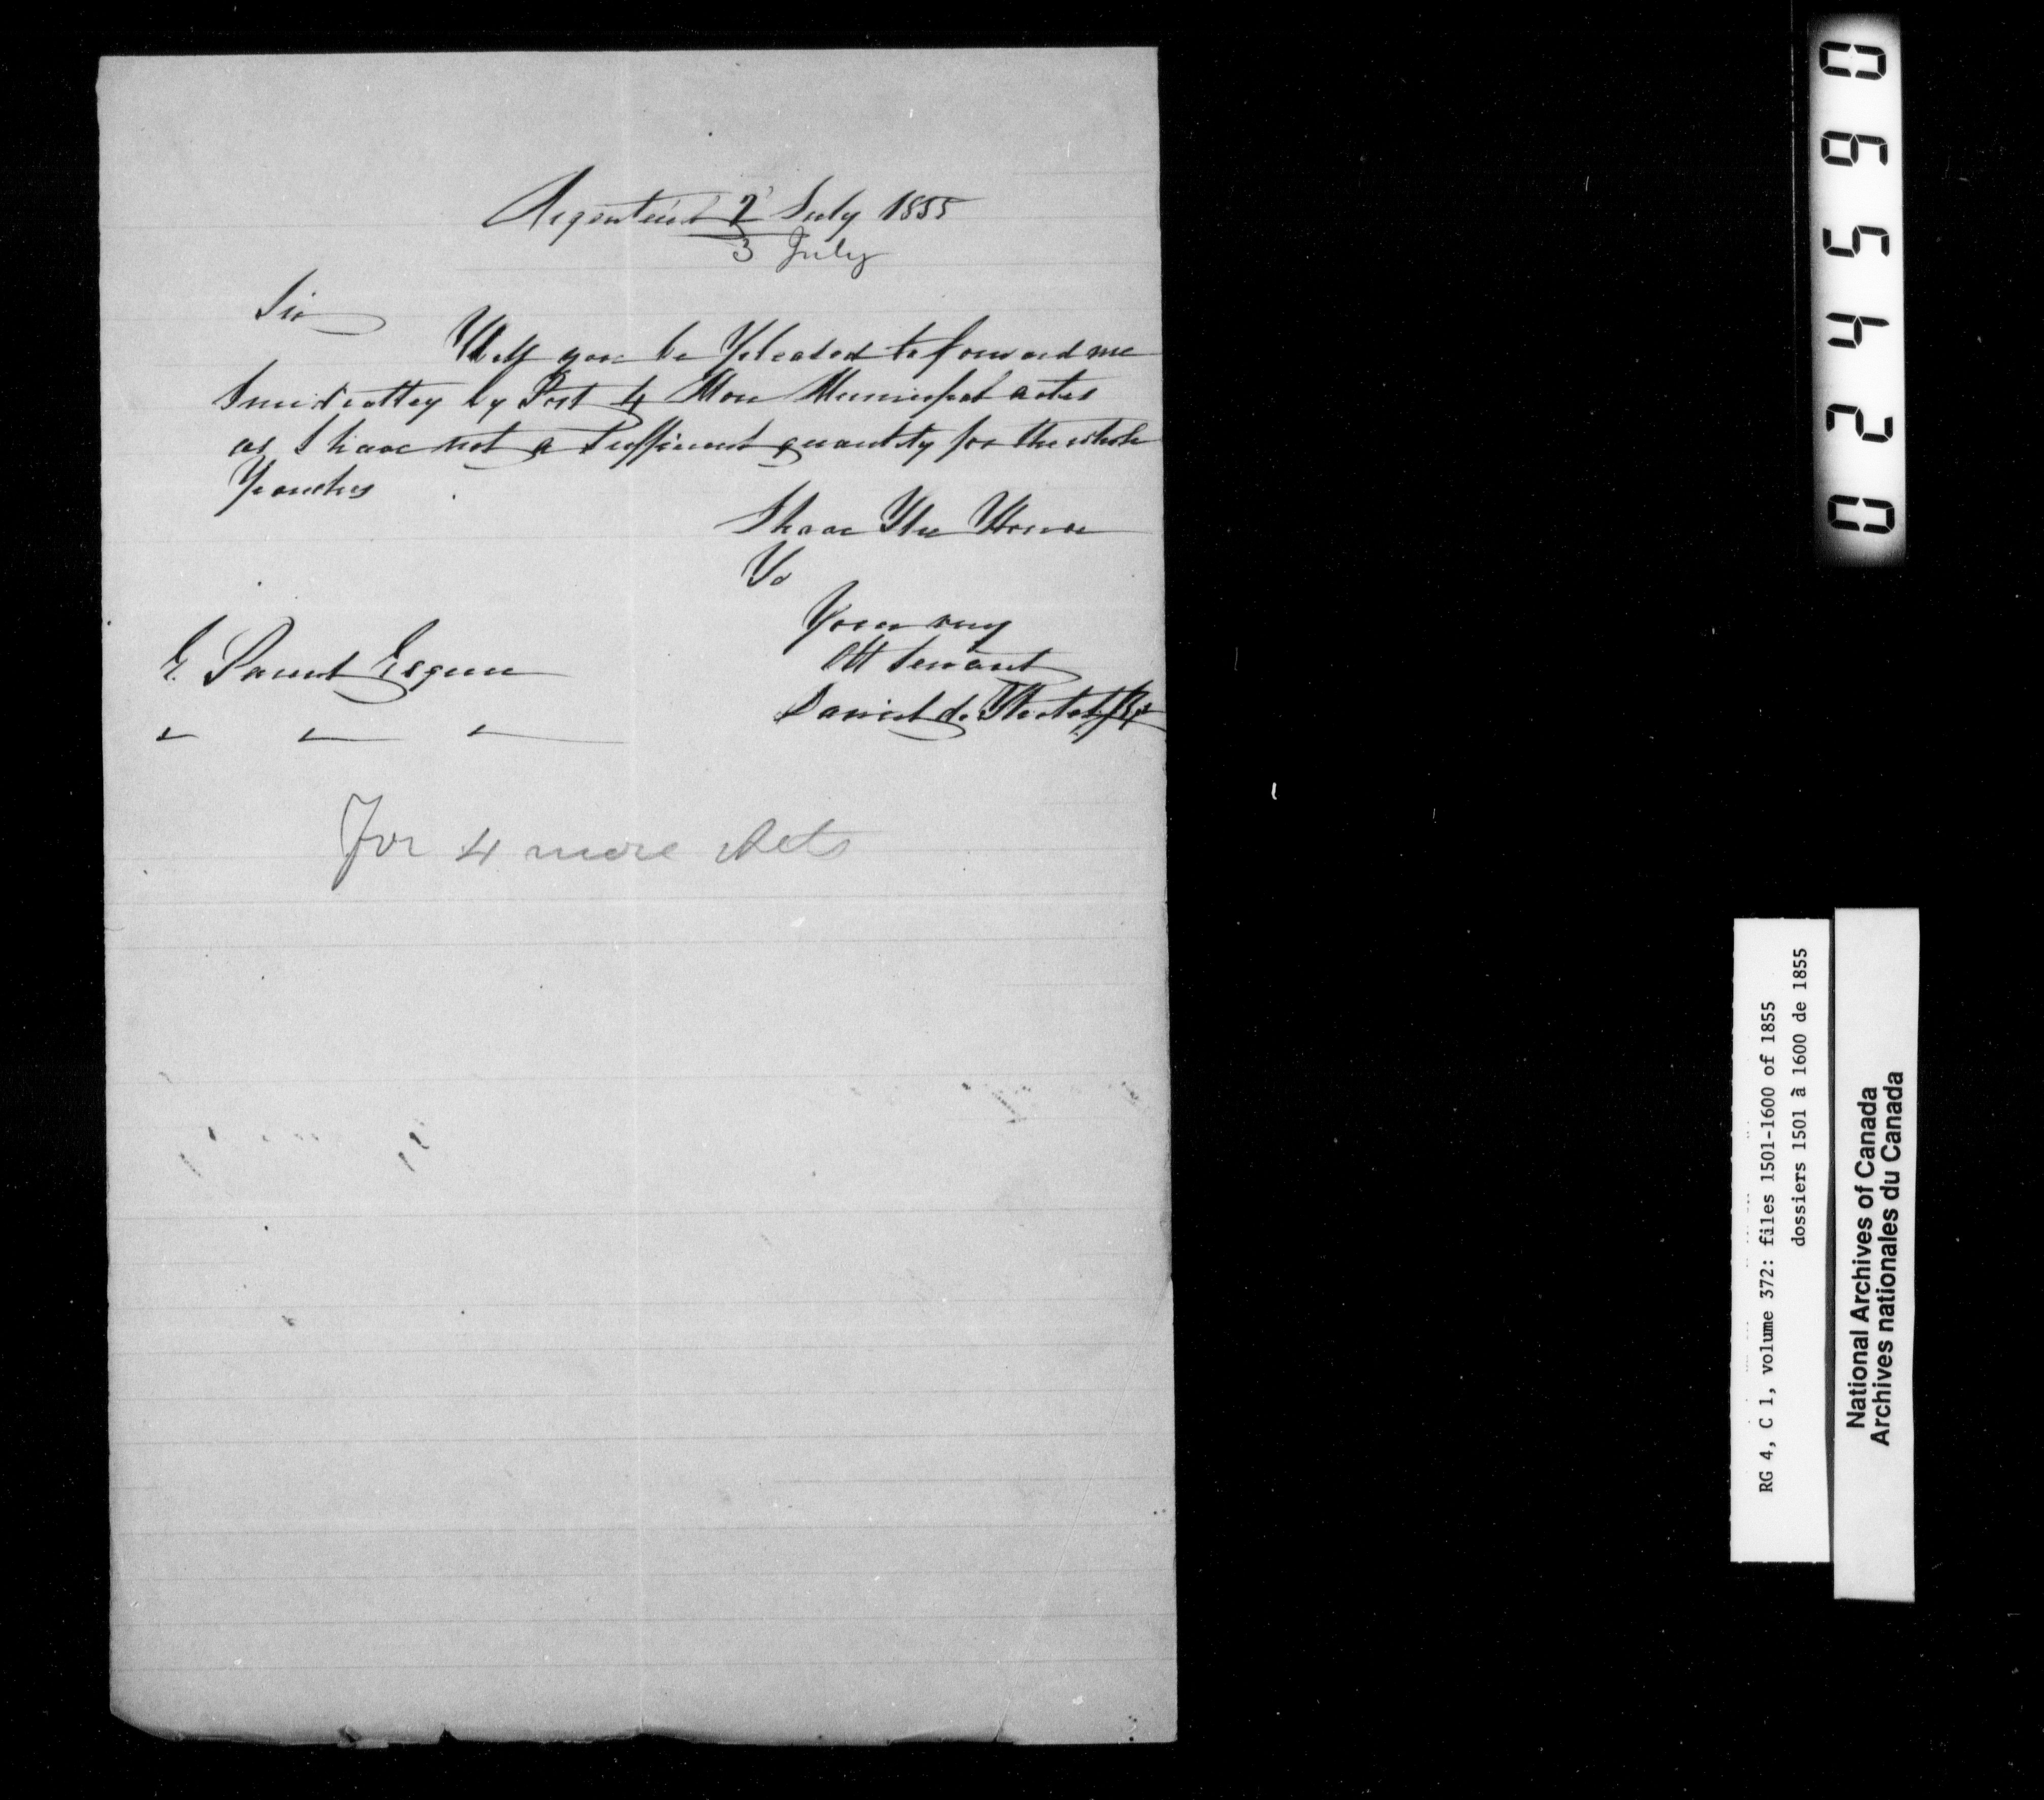 Argenteuil 2 July 1855
3 July
Sir
Will you be Pleased to forward me
Imidiattey by Post 4 More Municipal actes
as I have not a Sufficient quantity for the whole
Parishes
I have The Honor
To
Your very
Obt Servant
E. Parent Esquire
Daniel de
For 4 more Acts
024590
RG 4, C 1, volume 372: files 1501-1600 of 1855
dossiers 1501 à 1600 de 1855
National Archives of Canada
Archives nationales du Canada